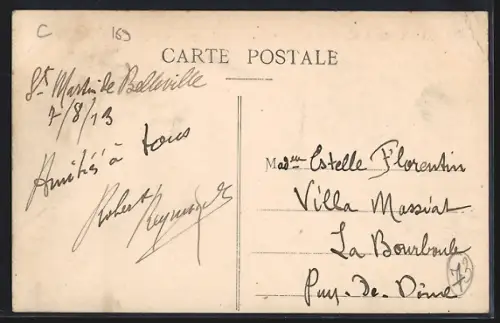 C 169
CARTE POSTALE
St Martin de Belleville
7/8/13
Amitiés à tous
Robert
Madame Estelle Florentin
Villa Massiat
La Bourboule
Puy-De-Dôme
73